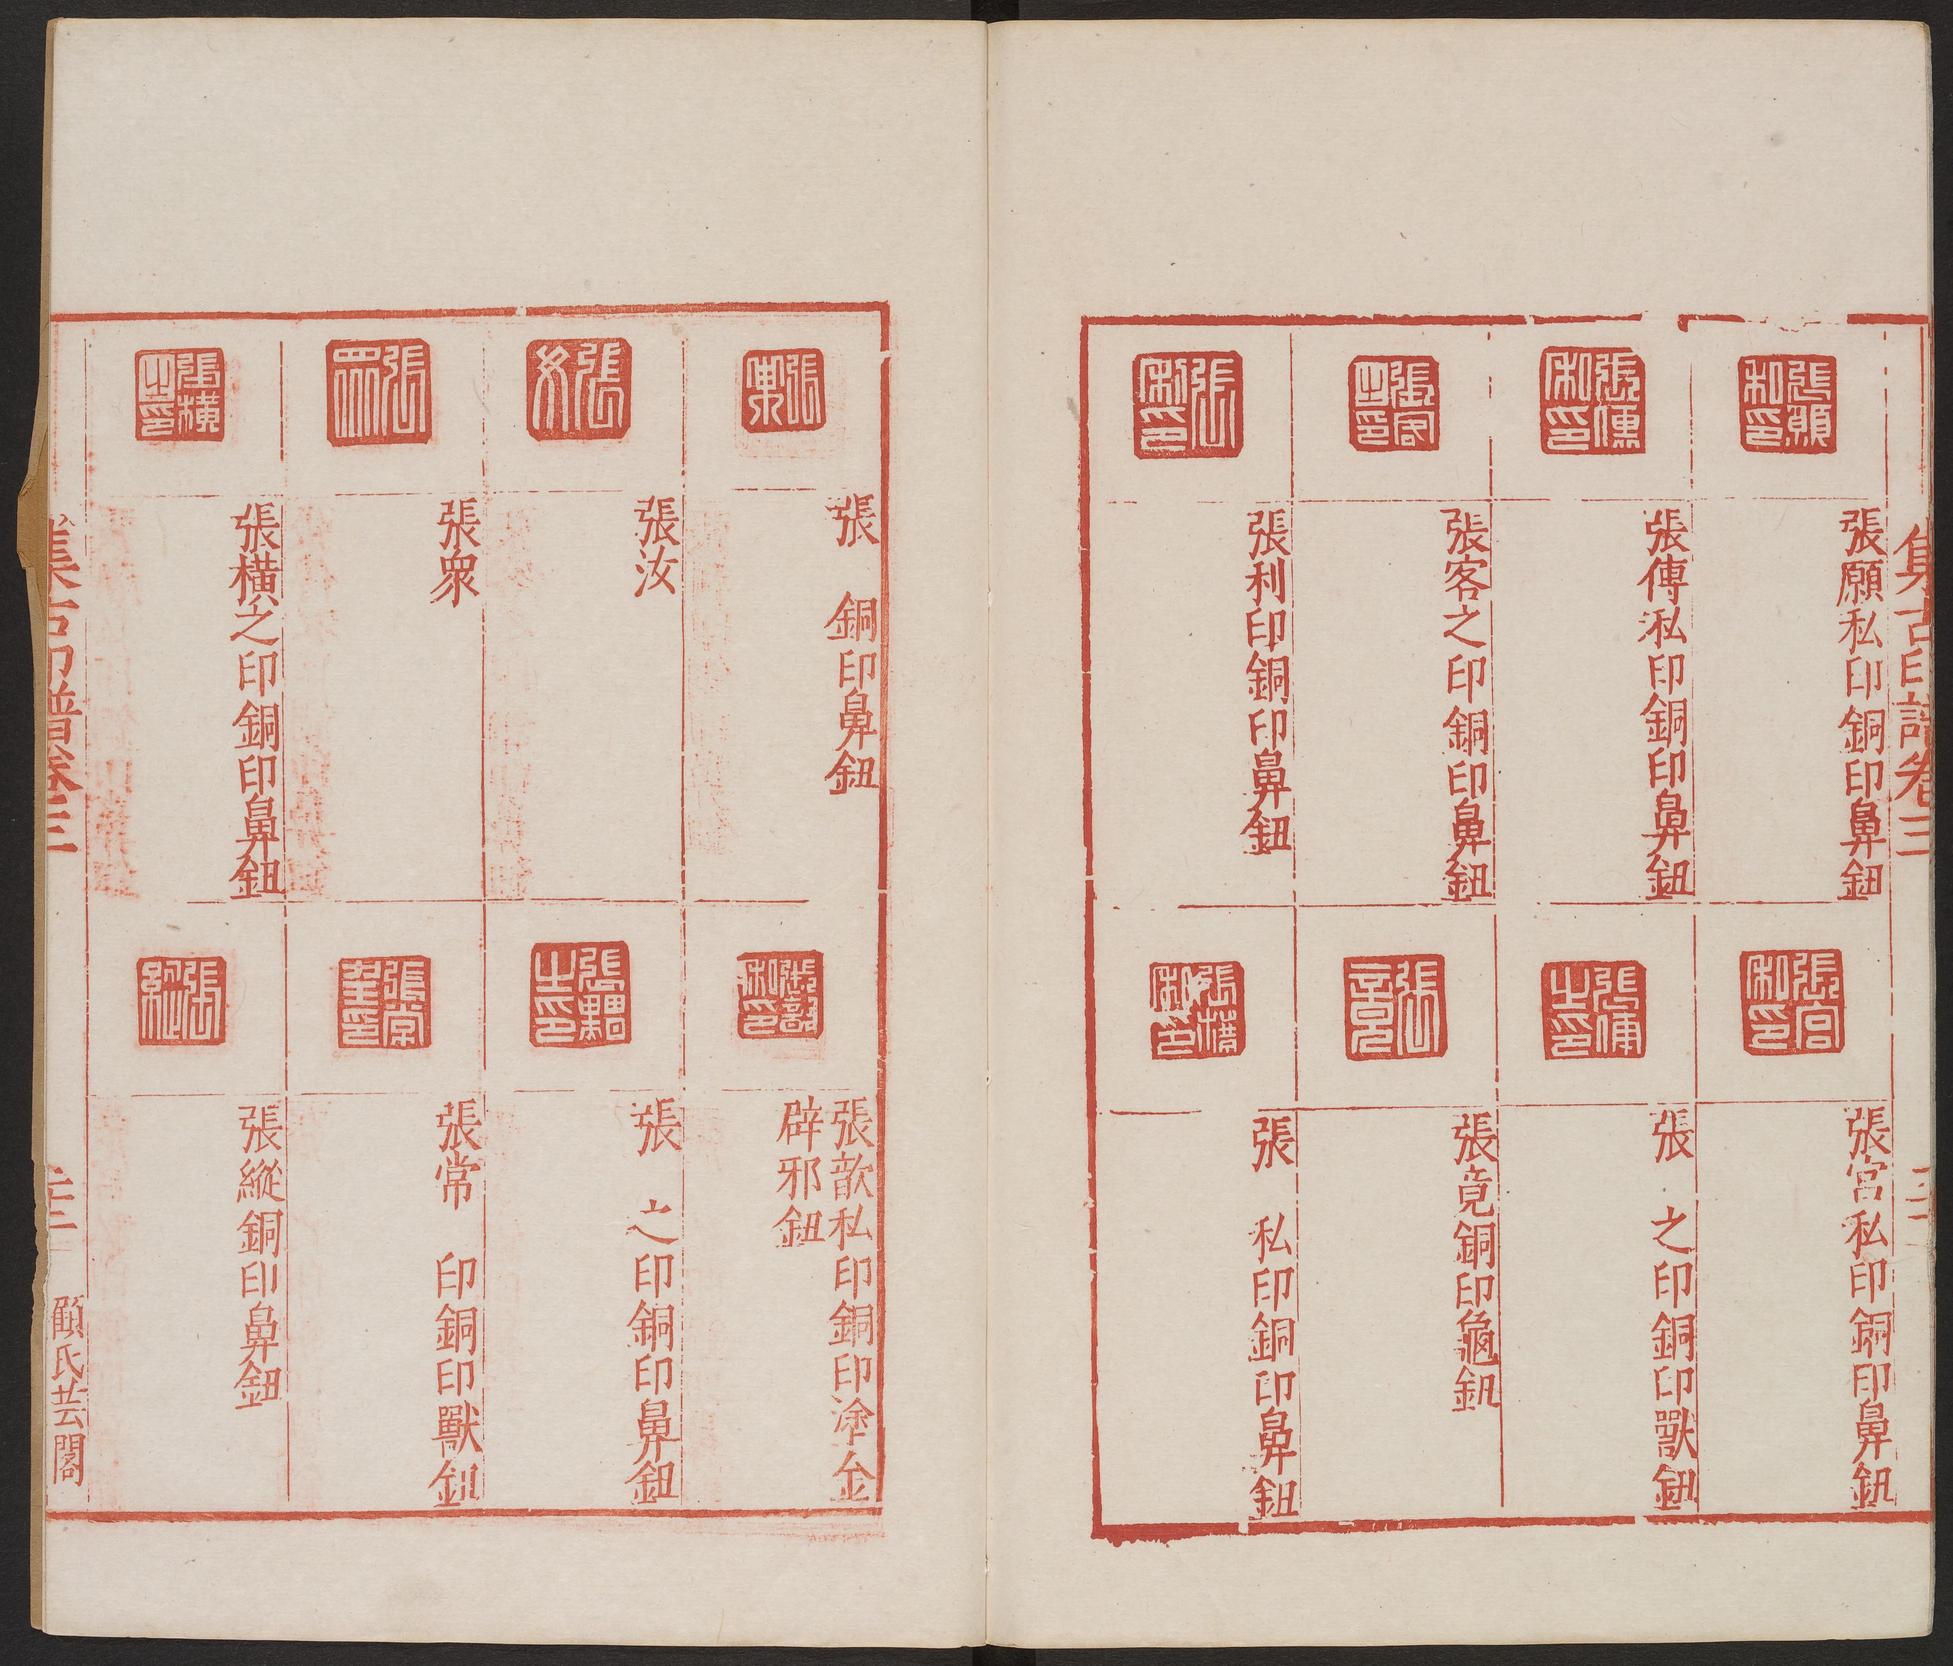 集古印譜卷三
張願私印銅印鼻鈕
張傳私印銅印鼻鈕
張客之印銅印鼻鈕
張利印銅印鼻鈕
張宮私印銅印鼻鈕
張 之印銅印獸鈕
張竟銅印龜鈕
張 私印銅印鼻鈕
張 銅印鼻鈕
張汝
張衆
張橫之印銅印鼻鈕
張歆私印銅印塗金
辟邪鈕
張 之印銅印鼻鈕
張常 印銅印獸鈕
張縱銅印鼻鈕
集古印譜卷三
顧氏芸閣